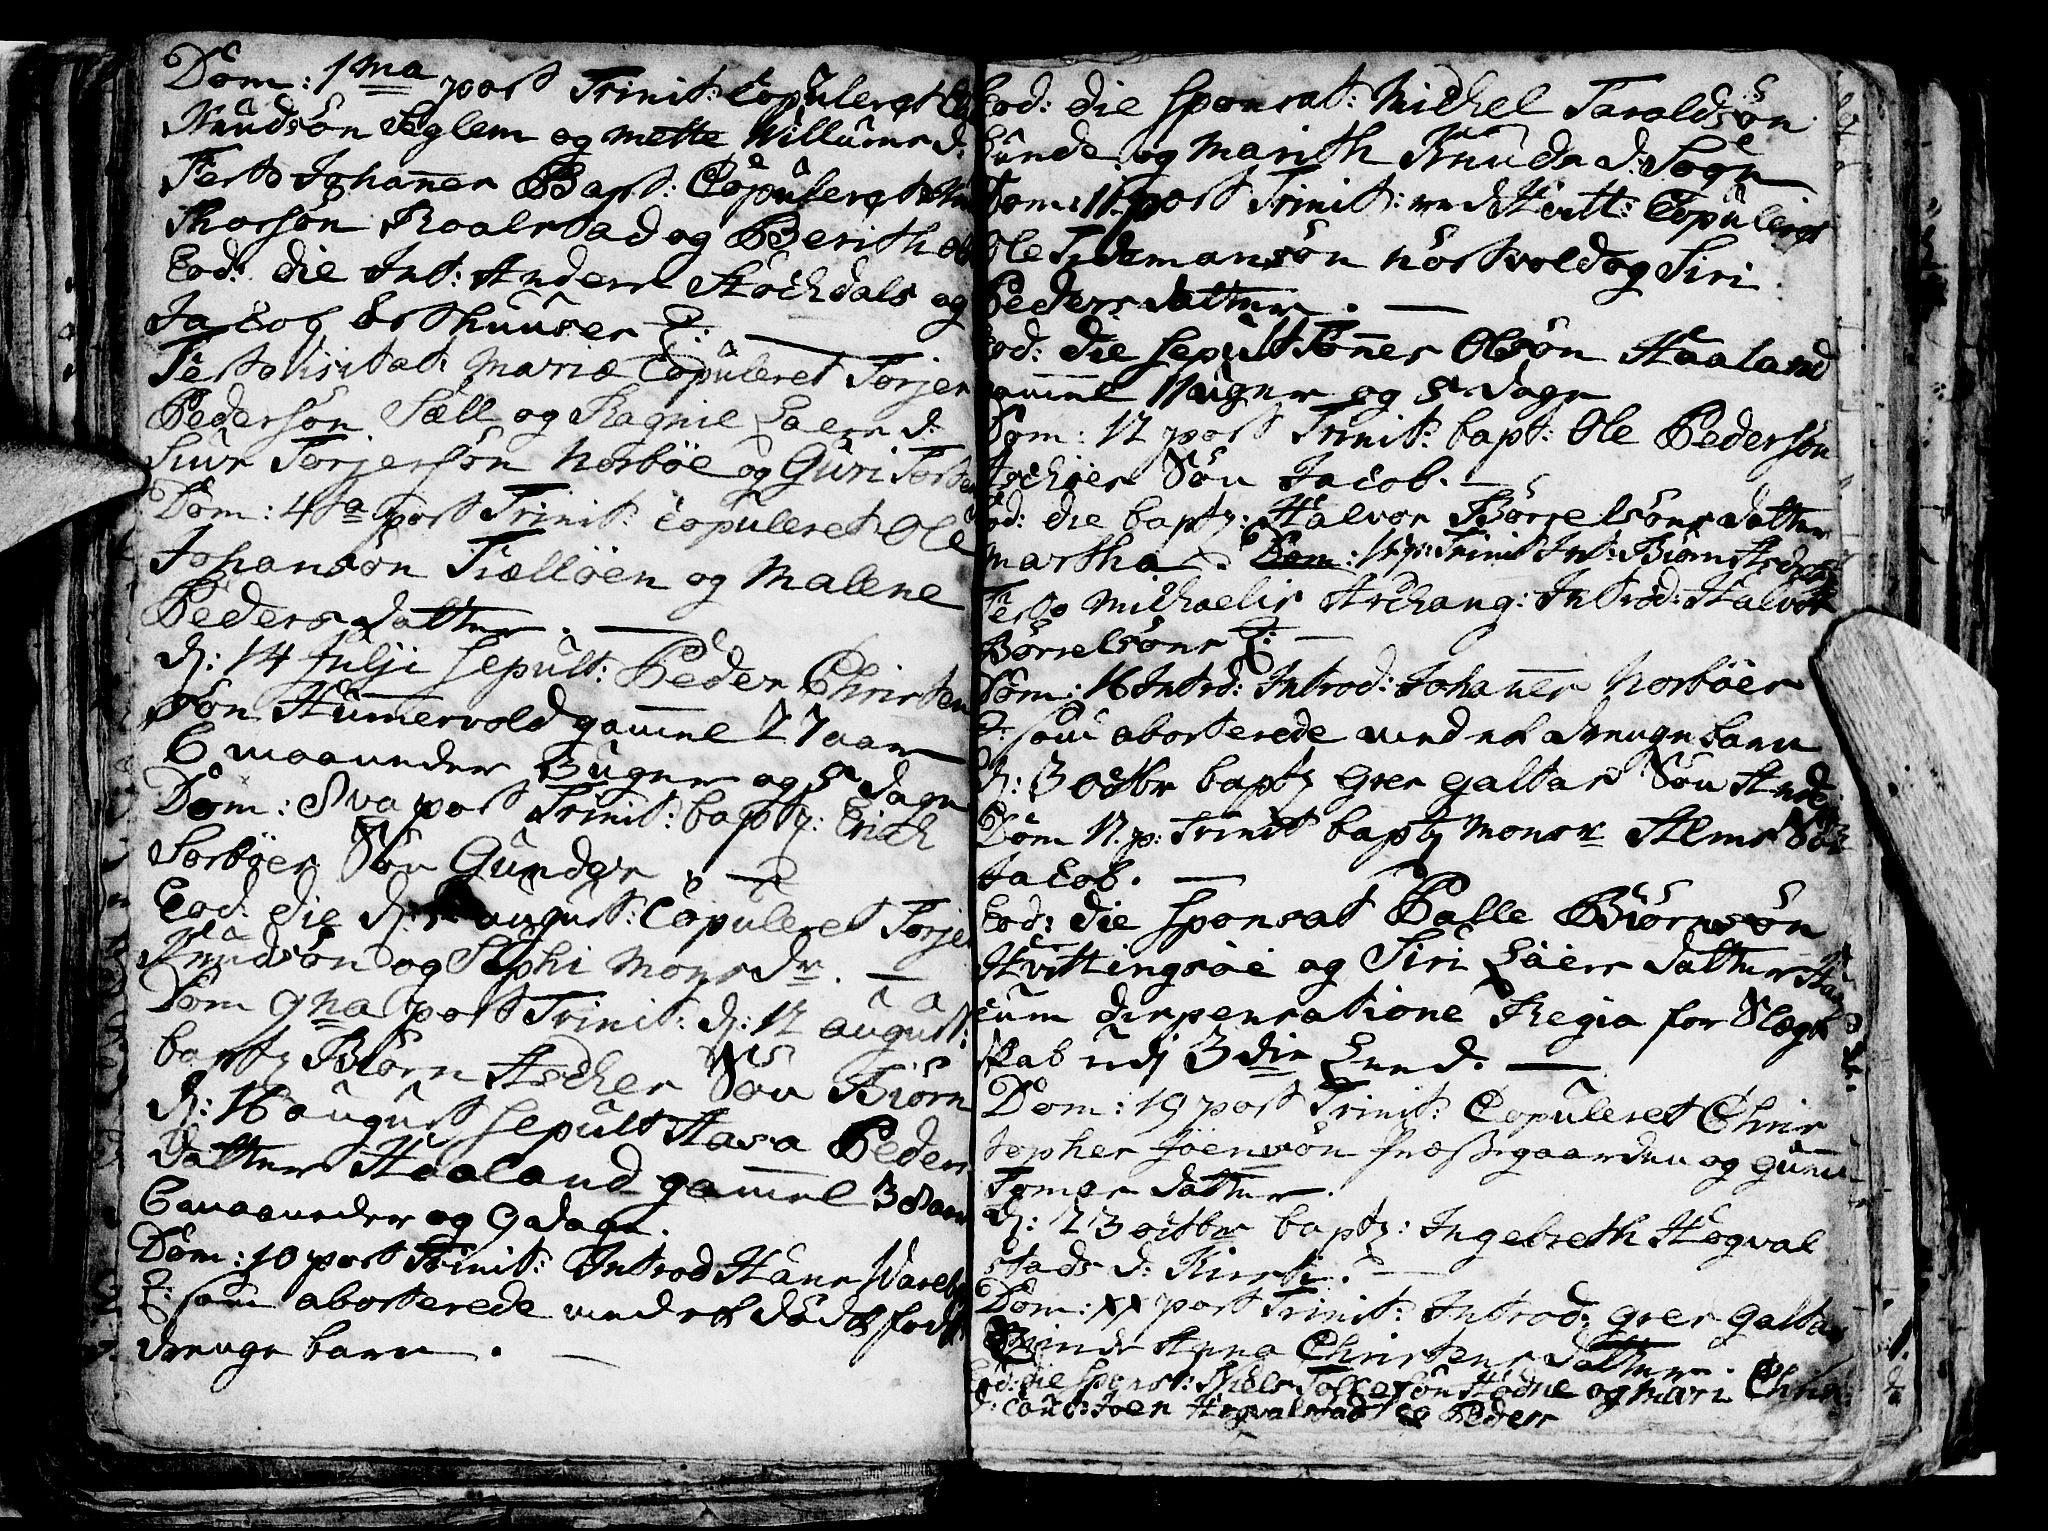 Dom: 1ma post Trinit: Copuleret
Knudsön Seglem og Mette Willums d.
Festo Johannes Bapt: Copuleret
Thorsön Roalstad og Berith
Eod: die Int: Anders Stochdals og
Jacob Østhuuses Q:
Festo Visitat: Mariæ Copuleret Torjer
Pedersön Sæll og Ragnie Laers d:
Siur Torjersön Norböe og Guri
Dom: 4ta post Trinit: Copuleret Ole
Johansön Tiællöen og Malene
Pedersdatter.
d: 14 Julji sepult: Peder Christen
sön Hummervold gammel 27 aar
6 maaneder 3 Uger og 5 Dage
Dom: 8va post Trinit: bapt: Erich
Sorböes Sön Gunder.
Eod: die d: august: Copuleret Torjer
Knudsön og Siphi Monsdr.
Dom 9na post Trinit: d: 12 august:
bapt Biörn Asches Sön Biörn
d: 16 august sepult Aasa Peders
datter Haaland gammel 38 aar
6 maaneder og 9 dage.
Dom: 10 post Trinit: Introd Hans
Q: som aborterede med et dödt föd
drenge barn.
Eod: die sponsat: Michel Taraldsön
Lunde og Marith Knuds d: Sogn
Dom: 11 post Trinit: Copuleret
Ole Tidemansön Nortvold og Siri
Pedersdatter.
Eod: die sepult Tönnes Olsön Haaland
gammel 11 Uger og 5 dage
Dom: 12 post Trinit: bapt: Ole Pedersön
Sön Jacob.
Eod: die bapt: Halvor Börrelsöns datter
Martha. Dom: Trinit Int: Biörn
Festo Michaelis Archang: Introd: Halvor
Börrelsöns Q:
Dom: 16 Introd: Johannes Norböes
Q: som aborterede med et drenge barn
d: 3 octbr bapt Gres Galtas Sön
Dom 17. p: Trinit bapt Monsr Alms Sön
Jacob.
Eod: die sponsat Palle Biörnsön
Hvittingsöe og Siri Laers datter
cum dispensatione Regia for Slægt
skab udj 3die Leed.
Dom: 19 post Trinit: Copuleret Chris
topher Joensön Præstegaarden og
Tomes datter.
d: 23 octbr bapt: Ingebreth Hogval
stads d: Kirsti.
Dom: XX post Trinit: Introd: Gres Galtas
Qvinde Anna Christens datter.
Eod: die spons: Niels Tollefsön Hodne og Mari Chris
d: caut: Joen Hogvalstad og Peder